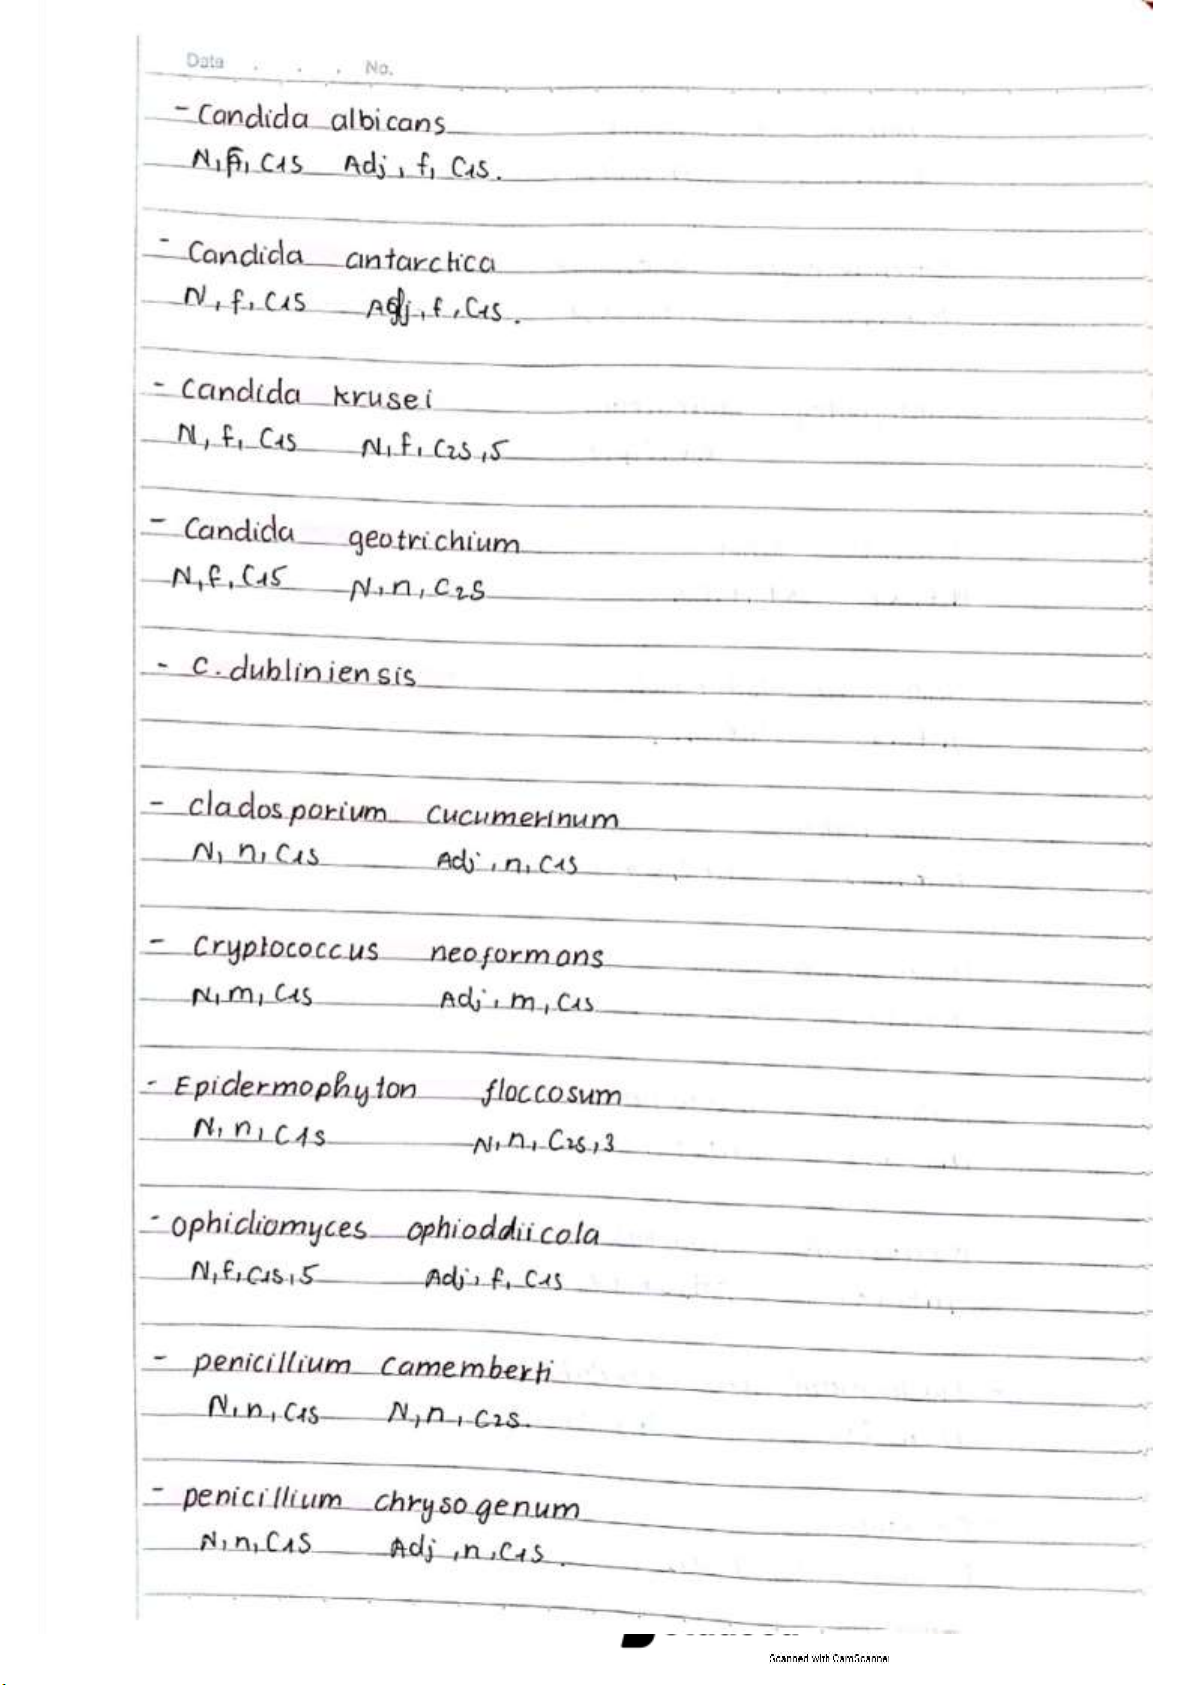 Date . . . No.
- Candida albicans
N, f, C1S Adj, f, C1S.
- Candida antarctica
N, f, C1S Adj, f, C1S.
- Candida krusei
N, f, C1S N, f, C2S, 5
- Candida geotrichium
N, f, C1S N, n, C2S
- C. dubliniensis
- Clados porium Cucumerinum
N, n, C1S Adj, n, C1S
- Cryptococcus neoformans
N, m, C1S Adj, m, C1S
- Epidermophyton floccosum
N, n, C1S N, n, C2S, 3
- Ophidiomyces ophioddiicola
N, f, C1S, 5 Adj, f, C1S
- penicillium Camemberti
N, n, C1S N, n, C2S.
- penicillium chrysogenum
N, n, C1S Adj, n, C1S.
Scanned with CamScanner